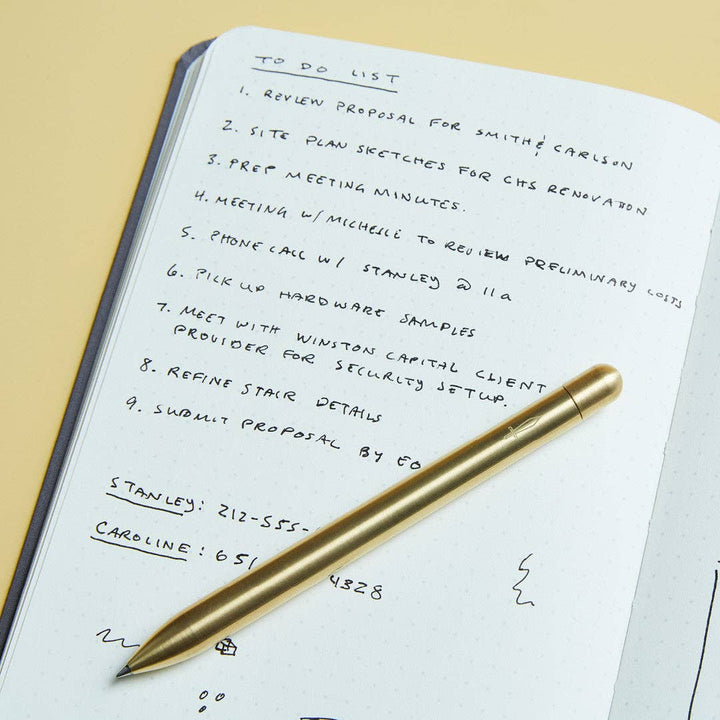 TO DO LIST
1. REVIEW PROPOSAL FOR SMITH & CARLSON
2. SITE PLAN SKETCHES FOR CHS RENOVATION
3. PREP MEETING MINUTES.
4. MEETING W/ MICHELLE TO REVIEW PRELIMINARY COSTS
5. PHONE CALL W/ STANLEY @ 11a
6. PICK UP HARDWARE SAMPLES
7. MEET WITH WINSTON CAPITAL CLIENT
PROVIDER FOR SECURITY SETUP.
8. REFINE STAIR DETAILS
9. SUBMIT PROPOSAL BY EO
STANLEY: 212-555-
CAROLINE: 651 4328